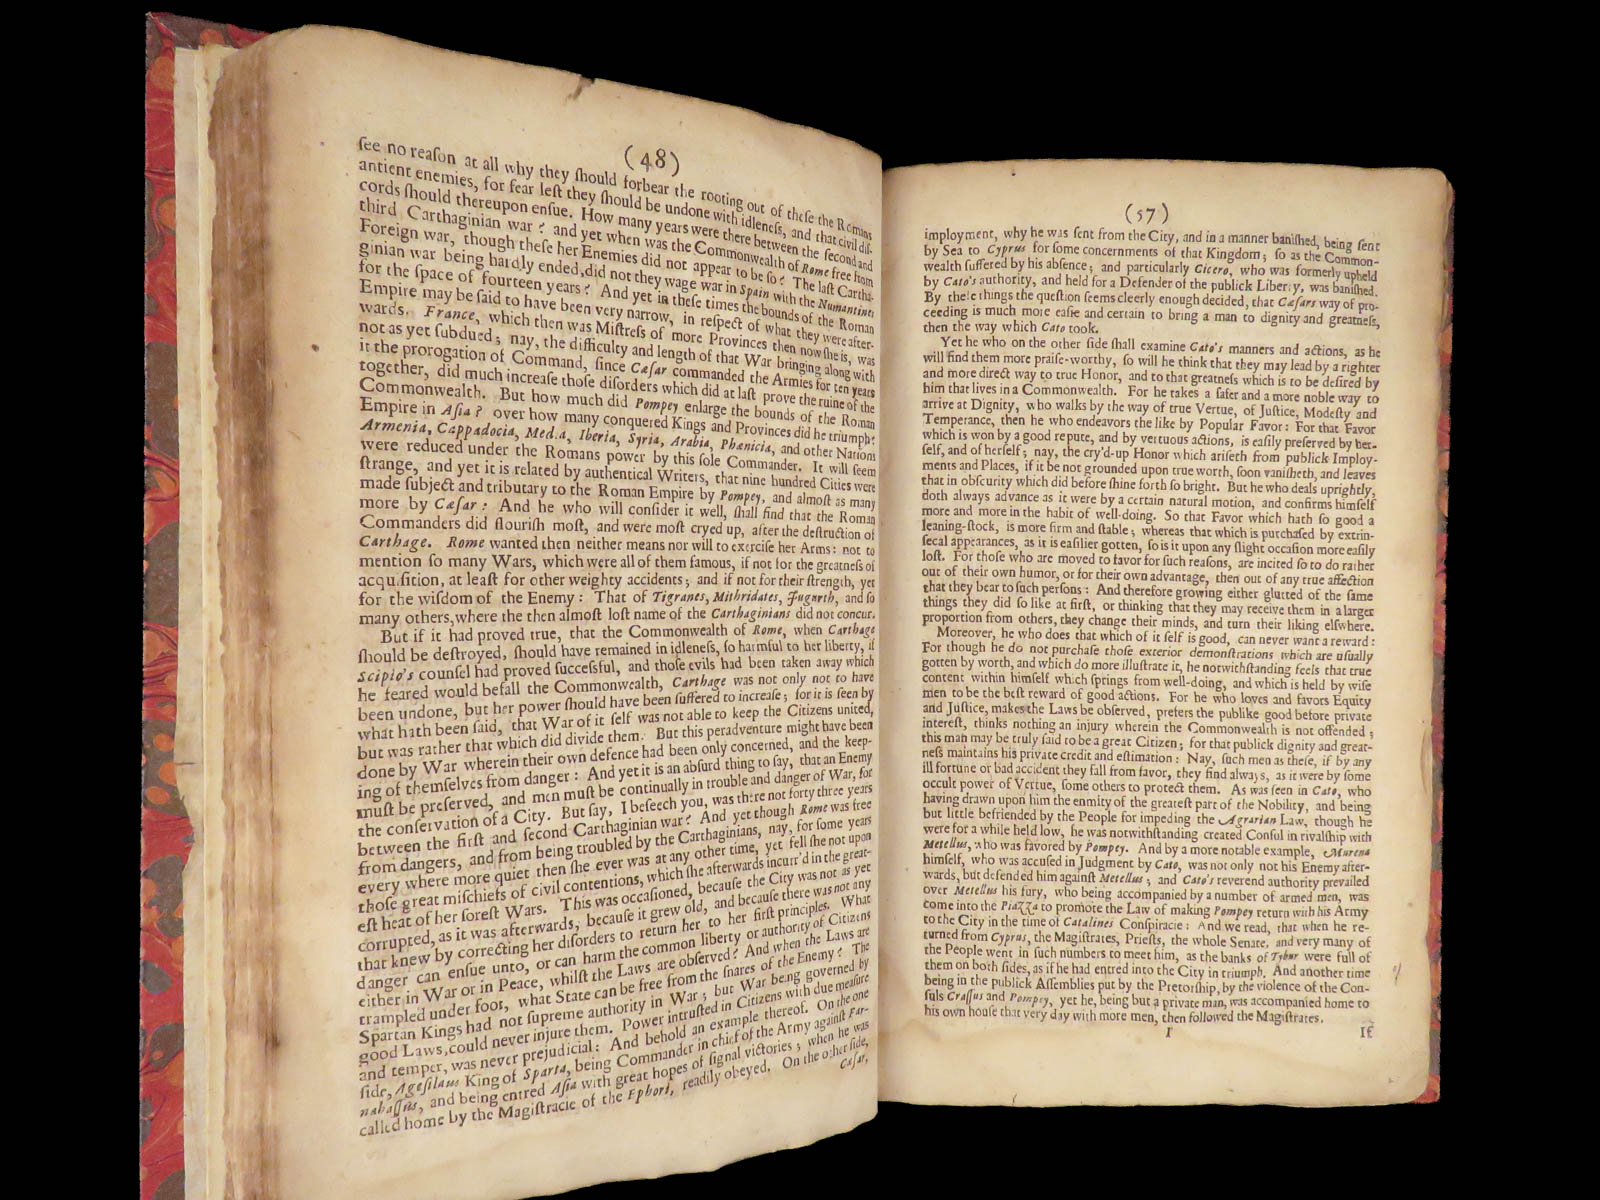 (48)
ſee no reaſon at all why they ſhould forbear the rooting out of theſe the Romans
antient enemies, for fear leſt they ſhould be undone with idleneſs, and that civil diſ-
cords ſhould thereupon enſue. How many years were there between the ſecond and
third Carthaginian war? and yet when was the Commonwealth of Rome free from
Foreign war, though theſe her Enemies did not appear to be ſo? The laſt Cartha-
ginian war being hardly ended, did not they wage war in Spain with the Numantines
for the ſpace of fourteen years? And yet in theſe times the bounds of the Roman
Empire may be ſaid to have been very narrow, in reſpect of what they were after-
wards. France, which then was Miſtreſs of more Provinces then now ſhe is, was
not as yet ſubdued; nay, the difficulty and length of that War bringing along with
it the prorogation of Command, ſince Cæſar commanded the Armies for ten years
together, did much increaſe thoſe diſorders which did at laſt prove the ruine of the
Commonwealth. But how much did Pompey enlarge the bounds of the Roman
Empire in Aſia? over how many conquered Kings and Provinces did he triumph?
Armenia, Cappadocia, Media, Iberia, Syria, Arabia, Phænicia, and other Nations
were reduced under the Romans power by this ſole Commander. It will ſeem
ſtrange, and yet it is related by authentical Writers, that nine hundred Cities were
made ſubject and tributary to the Roman Empire by Pompey, and almoſt as many
more by Cæſar: And he who will conſider it well, ſhall find that the Roman
Commanders did flouriſh moſt, and were moſt cryed up, after the deſtruction of
Carthage. Rome wanted then neither means nor will to exerciſe her Arms: not to
mention ſo many Wars, which were all of them famous, if not for the greatneſs of
acquiſition, at leaſt for other weighty accidents; and if not for their ſtrength, yet
for the wiſdom of the Enemy: That of Tigranes, Mithridates, Jugurth, and ſo
many others, where the then almoſt loſt name of the Carthaginians did not concur.
But if it had proved true, that the Commonwealth of Rome, when Carthage
ſhould be deſtroyed, ſhould have remained in idleneſs, ſo harmful to her liberty, if
Scipio's counſel had proved ſucceſsful, and thoſe evils had been taken away which
he feared would befall the Commonwealth, Carthage was not only not to have
been undone, but her power ſhould have been ſuffered to increaſe; for it is ſeen by
what hath been ſaid, that War of it ſelf was not able to keep the Citizens united,
but was rather that which did divide them. But this peradventure might have been
done by War wherein their own defence had been only concerned, and the keep-
ing of themſelves from danger: And yet it is an abſurd thing to ſay, that an Enemy
muſt be preſerved, and men muſt be continually in trouble and danger of War, for
the conſervation of a City. But ſay, I beſeech you, was there not forty three years
between the firſt and ſecond Carthaginian war? And yet though Rome was free
from dangers, and from being troubled by the Carthaginians, nay, for ſome years
every where more quiet then ſhe ever was at any other time, yet fell ſhe not upon
thoſe great miſchiefs of civil contentions, which ſhe afterwards incurr'd in the great-
eſt heat of her ſoreſt Wars. This was occaſioned, becauſe the City was not as yet
corrupted, as it was afterwards, becauſe it grew old, and becauſe there was not any
that knew by correcting her diſorders to return her to her firſt principles. What
danger can enſue unto, or can harm the common liberty or authority of Citizens
either in War or in Peace, whilſt the Laws are obſerved? And when the Laws are
trampled under foot, what State can be free from the ſnares of the Enemy? The
Spartan Kings had not ſupreme authority in War; but War being governed by
good Laws, could never injure them. Power intruſted in Citizens with due meaſure
and temper, was never prejudicial: And behold an example thereof. On the one
ſide, Ageſilaus King of Sparta, being Commander in chief of the Army againſt Far-
nabaſſus, and being entred Aſia with great hopes of ſignal victories; when he was
called home by the Magiſtracie of the Ephori, readily obeyed. On the other ſide,
Cæſar,
(57)
imployment, why he was ſent from the City, and in a manner baniſhed, being ſent
by Sea to Cyprus for ſome concernments of that Kingdom; ſo as the Common-
wealth ſuffered by his abſence; and particularly Cicero, who was formerly upheld
by Cato's authority, and held for a Defender of the publick Liberty, was baniſhed.
By theſe things the queſtion ſeems cleerly enough decided, that Cæſars way of pro-
ceeding is much more eaſie and certain to bring a man to dignity and greatneſs,
then the way which Cato took.
Yet he who on the other ſide ſhall examine Cato's manners and actions, as he
will find them more praiſe-worthy, ſo will he think that they may lead by a righter
and more direct way to true Honor, and to that greatneſs which is to be deſired by
him that lives in a Commonwealth. For he takes a ſafer and a more noble way to
arrive at Dignity, who walks by the way of true Vertue, of Juſtice, Modeſty and
Temperance, then he who endeavors the like by Popular Favor: For that Favor
which is won by a good repute, and by vertuous actions, is eaſily preſerved by her-
ſelf, and of herſelf; nay, the cry'd-up Honor which ariſeth from publick Imploy-
ments and Places, if it be not grounded upon true worth, ſoon vaniſheth, and leaves
that in obſcurity which did before ſhine forth ſo bright. But he who deals uprightly,
doth always advance as it were by a certain natural motion, and confirms himſelf
more and more in the habit of well-doing. So that Favor which hath ſo good a
leaning-ſtock, is more firm and ſtable; whereas that which is purchaſed by extrin-
ſecal appearances, as it is eaſilier gotten, ſo is it upon any ſlight occaſion more eaſily
loſt. For thoſe who are moved to favor for ſuch reaſons, are incited ſo to do rather
out of their own humor, or for their own advantage, then out of any true affection
that they bear to ſuch perſons: And therefore growing either glutted of the ſame
things they did ſo like at firſt, or thinking that they may receive them in a larger
proportion from others, they change their minds, and turn their liking elſwhere.
Moreover, he who does that which of it ſelf is good, can never want a reward:
For though he do not purchaſe thoſe exterior demonſtrations which are uſually
gotten by worth, and which do more illuſtrate it, he notwithſtanding feels that true
content within himſelf which ſprings from well-doing, and which is held by wiſe
men to be the beſt reward of good actions. For he who loves and favors Equity
and Juſtice, makes the Laws be obſerved, prefers the publike good before private
intereſt, thinks nothing an injury wherein the Commonwealth is not offended;
this man may be truly ſaid to be a great Citizen; for that publick dignity and great-
neſs maintains his private credit and eſtimation: Nay, ſuch men as theſe, if by any
ill fortune or bad accident they fall from favor, they find always, as it were by ſome
occult power of Vertue, ſome others to protect them. As was ſeen in Cato, who
having drawn upon him the enmity of the greateſt part of the Nobility, and being
but little befriended by the People for impeding the Agrarian Law, though he
were for a while held low, he was notwithſtanding created Conſul in rivalſhip with
Metellus, who was favored by Pompey. And by a more notable example, Murena
himſelf, who was accuſed in Judgment by Cato, was not only not his Enemy after-
wards, but defended him againſt Metellus; and Cato's reverend authority prevailed
over Metellus his fury, who being accompanied by a number of armed men, was
come into the Piazza to promote the Law of making Pompey return with his Army
to the City in the time of Catalines Conſpiracie: And we read, that when he re-
turned from Cyprus, the Magiſtrates, Prieſts, the whole Senate, and very many of
the People went in ſuch numbers to meet him, as the banks of Tybur were full of
them on both ſides, as if he had entred into the City in triumph. And another time
being in the publick Aſſemblies put by the Pretorſhip, by the violence of the Con-
ſuls Craſſus and Pompey, yet he, being but a private man, was accompanied home to
his own houſe that very day with more men, then followed the Magiſtrates.
I If